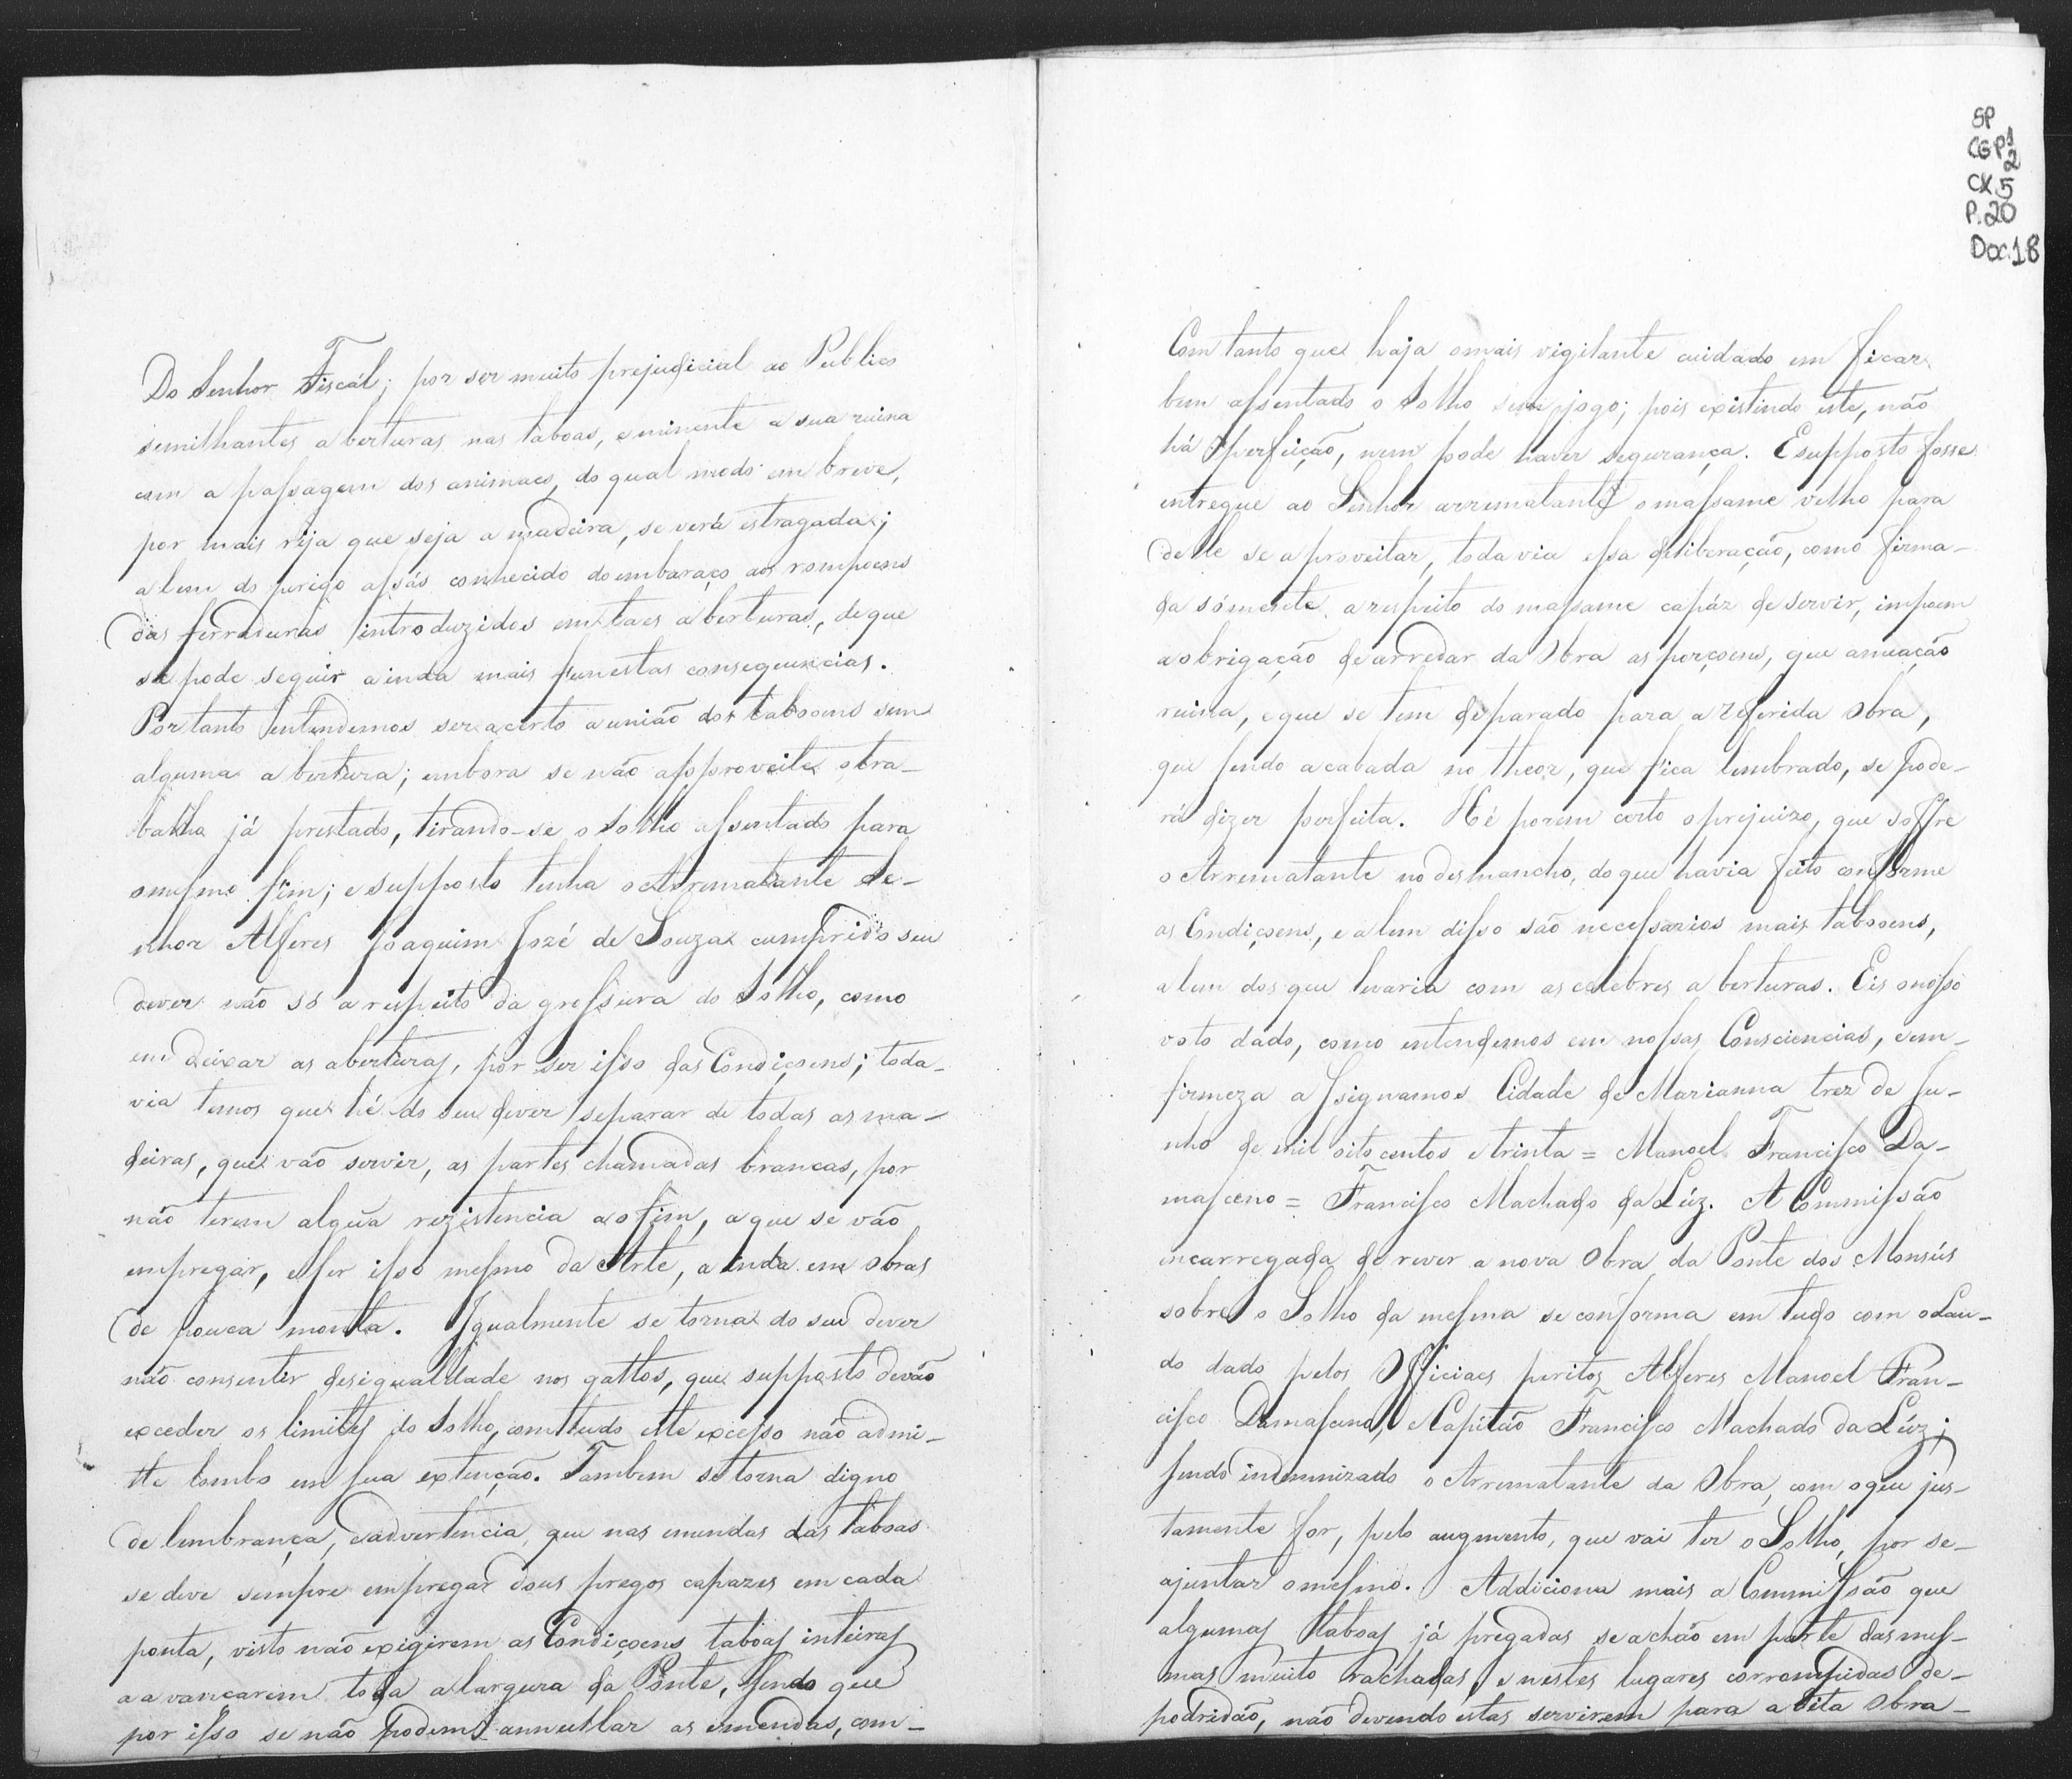 Do Senhor Fiscál; por ser muito prejudicial ao Publico
semilhantes aberturas nas taboas, eminente a sua ruina
com a passagem dos animaes, do qual modo em breve,
por mais rija que seja a madeira, se verá estragada;
alem do perigo assás conhecido do embaraço aos rompoens
das ferraduras introduzidos em taes aberturas, de que
se pode seguir ainda mais funestas consequencias.
Portanto entendemos ser acerto a união dos taboens sem
alguma abertura; embora se não approveite o tra-
balho já prestado, tirando-se o Solho assentado para
o mesmo fim; e supposto tenha o Arrematante Se-
nhor Alferes Joaquim Jozé de Souza cumprido seu
dever não só a respeito da grossura do Solho, como
em deixar as aberturas, por ser isso das Condiçoens; toda-
via temos que hé do seu dever separar de todas as ma-
deiras, que vão servir, as partes chamadas brancas, por
não terem algũa rezistencia ao fim, a que se vão
empregar, e ser isso mesmo da Arte, ainda em obras
de pouca monta. Igualmente se torna do seu dever
não consentir desigualdade nos gattos, que supposto devão
exceder os limites do Solho, comtudo este excesso não admi-
tte lombo em sua extenção. Tambem se torna digno
de lembrança, e advertencia, que nas emendas das taboas
se deve sempre empregar dous pregos capazes em cada
ponta, visto não exigirem as Condiçoens taboas inteiras
a avançarem toda a largura da Ponte, sendo que
por isso se não podem annullar as emendas, com-
SP
CGP1
2
CX 5
P. 20
Doc.18
Com tanto que haja o mais vigilante cuidado em ficar
bem assentado o Solho sem jogo; pois existindo este, não
há perfeição, nem pode haver segurança. E supposto fosse
entregue ao Senhor arrematante o massame velho para
delle se aproveitar, toda via essa deliberação, como firma-
da sómente a respeito do massame capáz de servir, impoem
a obrigação de arredar da Obra as porçoens, que ameação
ruina, e que se tem deparado para a referida Obra,
que sendo acabada no theor, que fica lembrado, se pode-
rá dizer perfeita. Hé porem certo o prejuizo, que soffre
o Arrematante no desmancho, do que havia feito conforme
as Condiçoens, e alem disso são necessarios mais taboens,
alem dos que levaria com as celebres aberturas. Eis o nosso
voto dado, como entendemos em nossas Consciencias, e em
firmeza assignamos Cidade de Marianna trez de Ju-
nho de mil oito centos e trinta = Manoel Francisco Da-
masceno = Francisco Machado da Lúz. A Commissão
incarregada de rever a nova Obra da Ponte dos Monsús
sobre o Solho da mesma se conforma em tudo com o Lau-
do dado pelos Officiaes peritos Alferes Manoel Fran-
cisco Damasceno, e Capitão Francisco Machado da Lúz;
sendo indemnizado o Arrematante da Obra, com o que jus-
tamente for, pelo augmento, que vai ter o Solho, por se-
ajuntar o mesmo. Addiciona mais a Commissão que
algumas taboas já pregadas se achão em parte das mes-
mas muito rachadas, e nestes lugares corrompidas de-
podridão, não devendo estas servirem para a dita Obra-